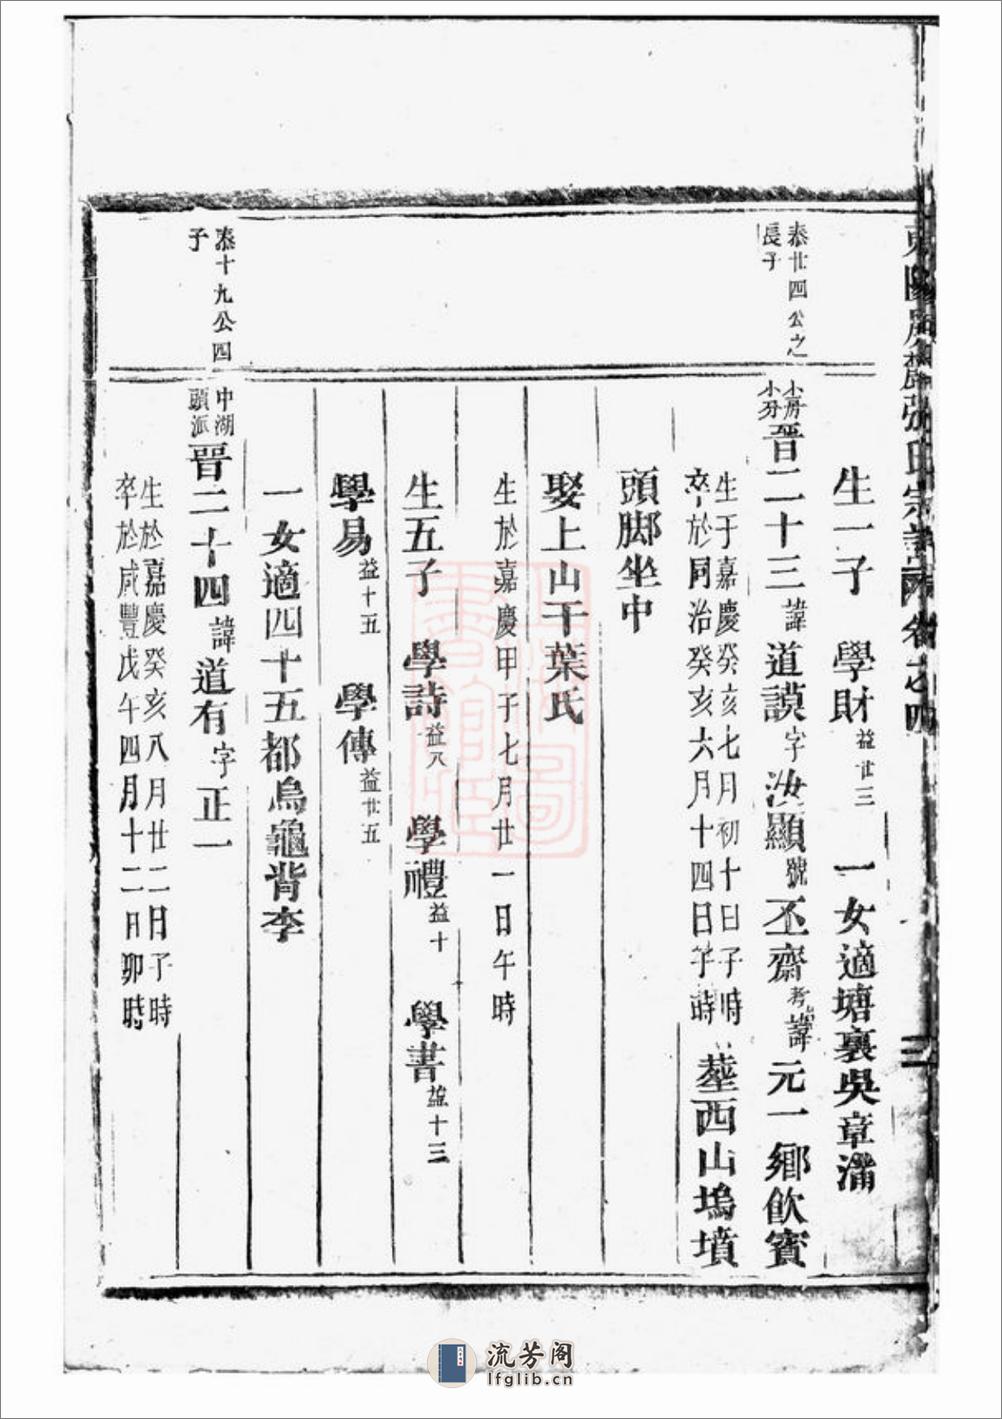 張氏宗譜 卷之四
三
生一子 學財益廿三 一女適塘裏吳章溜
泰廿四公之
長子
小房
小分
晉二十三諱道謨字汝顯號丕齋考諱元一鄉飲賓
生于嘉慶癸亥七月初十日子時
卒於同治癸亥六月十四日子時
塟西山塢墳
頭脚坐中
娶上山干葉氏
生於嘉慶甲子七月廿一日午時
生五子 學詩益八 學禮益十 學書益十三
學易益十五 學傳益廿五
一女適四十五都烏龜背李
泰十九公四
子
中湖
頭派
晉二十四諱道有字正一
生於嘉慶癸亥八月廿二日子時
卒於咸豐戊午四月十二日卯時
流芳阁
lfglib.cn